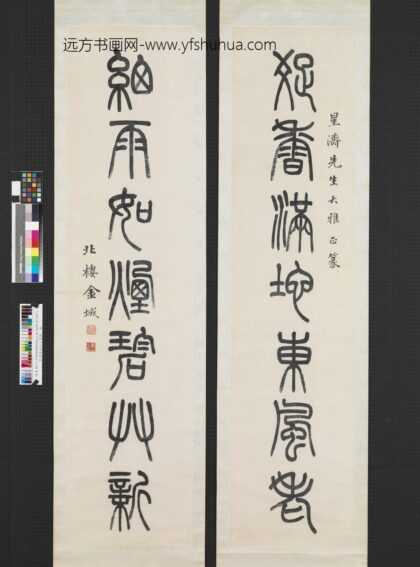 远方书画网-www.yfshuhua.com
星濤先生大雅正篆
香滿地東風老
細雨如煙碧艸新
北樓金城